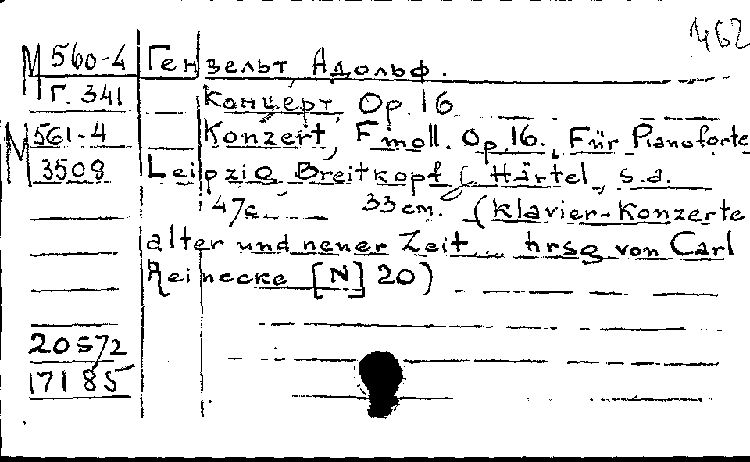 462
М 560-4 Гензельт, Адольф.
Г. 341 Концерт, Op. 16
М 561-4 Konzert, F moll. Op 16. Für Pianoforte
3508 Leipzig Breitkopf & Härtel, s.a.
47c. 33 cm. (Klavier-Konzerte
alter und neuer Zeit hrsg von Carl
Reinecke [N] 20)
20572
17185